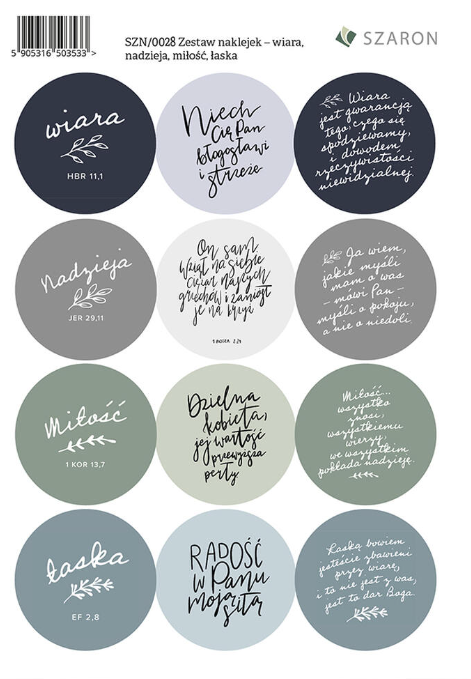 5 905316 503533 >
SZN/0028 Zestaw naklejek – wiara,
nadzieja, miłość, łaska
SZARON
wiara
HBR 11,1
Niech
Cię Pan
błogosławi
i strzeże
Wiara
jest gwarancją
tego, czego się
spodziewamy,
i dowodem
rzeczywistości
niewidzialnej.
nadzieja
JER 29,11
On sam
wziął na siebie
ciężar naszych
grzechów i zaniósł
je na krzyż
1 PIOTRA 2,24
Ja wiem,
jakie myśli
mam o was
– mówi Pan –
myśli o pokoju,
a nie o niedoli.
Miłość
1 KOR 13,7
Dzielna
kobieta,
jej wartość
przewyższa
perły
Miłość...
wszystko
znosi,
wszystkiemu
wierzy,
we wszystkim
pokłada nadzieję.
łaska
EF 2,8
RADOŚĆ
w Panu
moją
siłą
Łaską bowiem
jesteście zbawieni
przez wiarę,
i to nie jest z was,
jest to dar Boga.